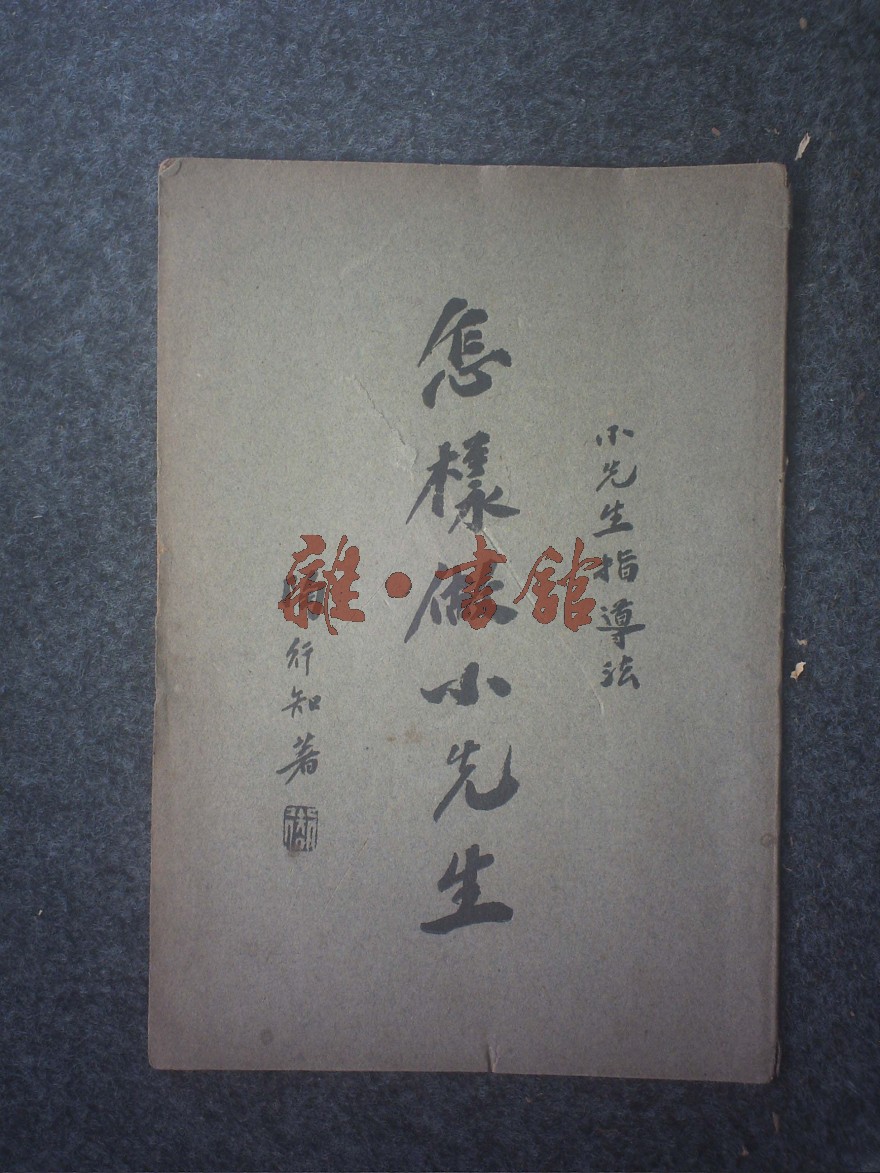 小先生指導法
怎樣做小先生
行知著
雜·書館